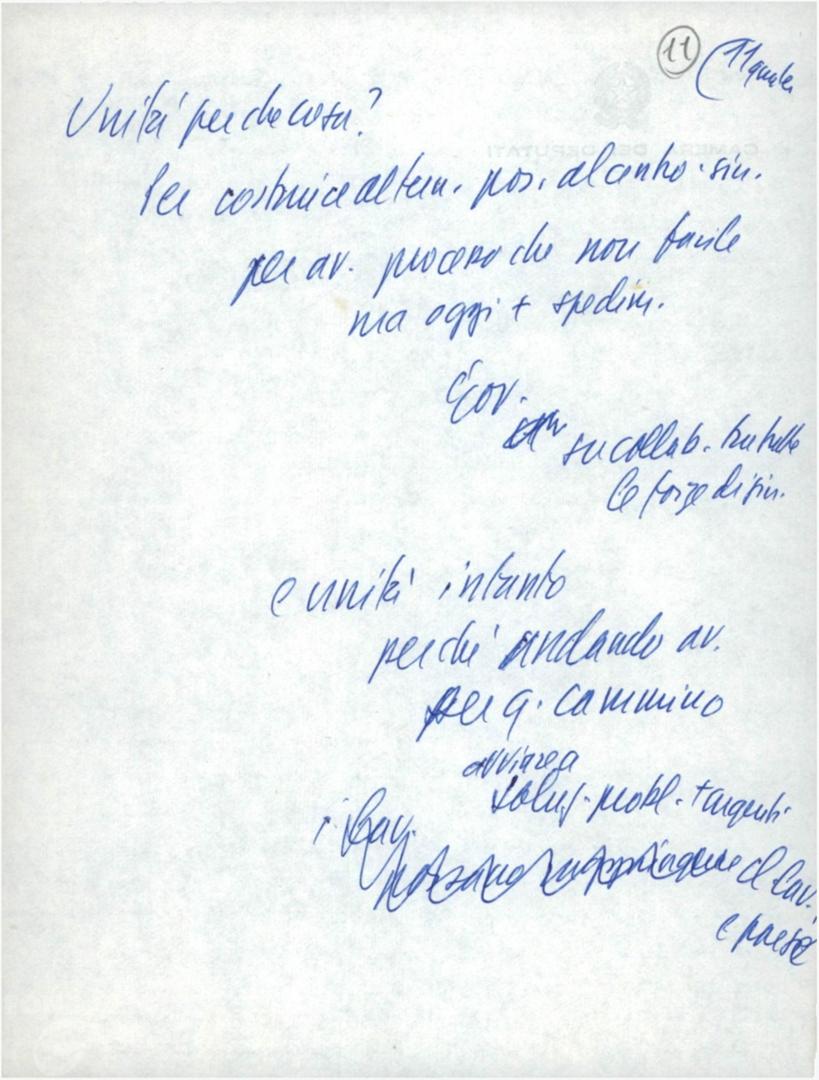 11 (11
Unità per che cosa?
Per costruire altern. pos. al centro-sin.
per av. processo che non facile
ma oggi + spedim.
Gov.
su collab. tra tutte
le forze di sin.
e unità intanto
perché andando av.
per q. cammino
avviare a
soluz. probl. + urgenti.
i lav.
il lav.
e paese
CAMERA DEI DEPUTATI